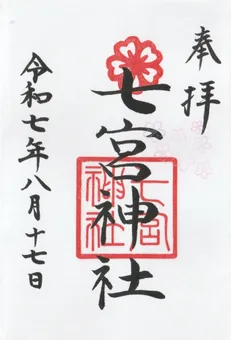 奉拝
七宮神社
七宮
神社
令和七年八月十七日